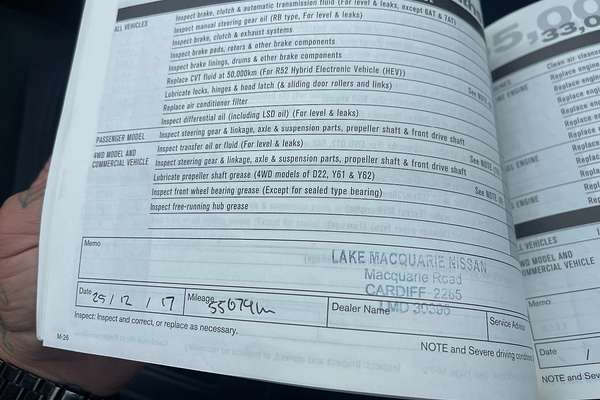 Inspect brake, clutch & automatic transmission fluid (For level & leaks, except 6AT & 7AT)
ALL VEHICLES
Inspect manual steering gear oil (RB type, For level & leaks)
Inspect brake, clutch & exhaust systems
Inspect brake pads, rotors & other brake components
Inspect brake linings, drums & other brake components
Replace CVT fluid at 50,000km (For R52 Hybrid Electronic Vehicle (HEV))
Lubricate locks, hinges & hood latch (& sliding door rollers and links)
See NOTE
Replace air conditioner filter
Inspect differential oil (including LSD oil) (For level & leaks)
PASSENGER MODEL
Inspect steering gear & linkage, axle & suspension parts, propeller shaft & front drive shaft
4WD MODEL AND COMMERCIAL VEHICLE
Inspect transfer oil or fluid (For level & leaks)
Inspect steering gear & linkage, axle & suspension parts, propeller shaft & front drive shaft
See NOTE
Lubricate propeller shaft grease (4WD models of D22, Y61 & Y62)
Inspect front wheel bearing grease (Except for sealed type bearing)
See NOTE
Inspect free-running hub grease
Memo
LAKE MACQUARIE NISSAN
Macquarie Road
CARDIFF 2265
LMD
Date 25 / 12 / 17
Mileage 55079km
Dealer Name
Service Advisor
Inspect: Inspect and correct, or replace as necessary.
NOTE and Severe driving
M-26
5,00
33,0
Clean air cleaner
Replace engine
Replace engine
Replace
Replace engine
Replace
ALL VEHICLES
4WD MODEL AND
COMMERCIAL VEHICLE
Memo
Date /
NOTE and Sev